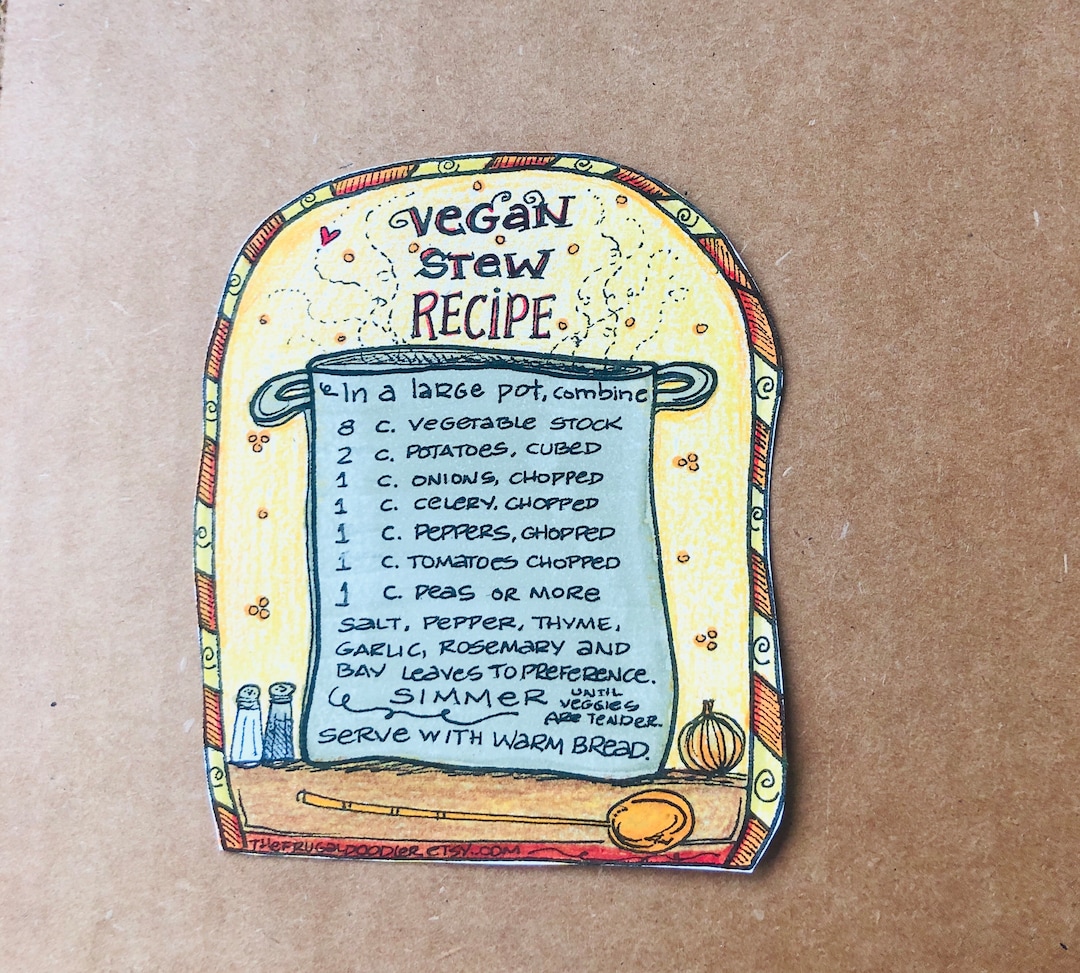 VEGAN
STEW
RECIPE
In a LARGE POT, combine
8 C. VEGETABLE STOCK
2 C. POTATOES, CUBED
1 C. ONIONS, CHOPPED
1 C. CELERY, CHOPPED
1 C. PEPPERS, CHOPPED
1 C. TOMATOES CHOPPED
1 C. PEAS OR MORE
SALT, PEPPER, THYME,
GARLIC, ROSEMARY AND
BAY LEAVES TO PREFERENCE.
SIMMER UNTIL
VEGGIES
ARE TENDER.
SERVE WITH WARM BREAD.
THEFRUGALDOODLER.ETSY.COM